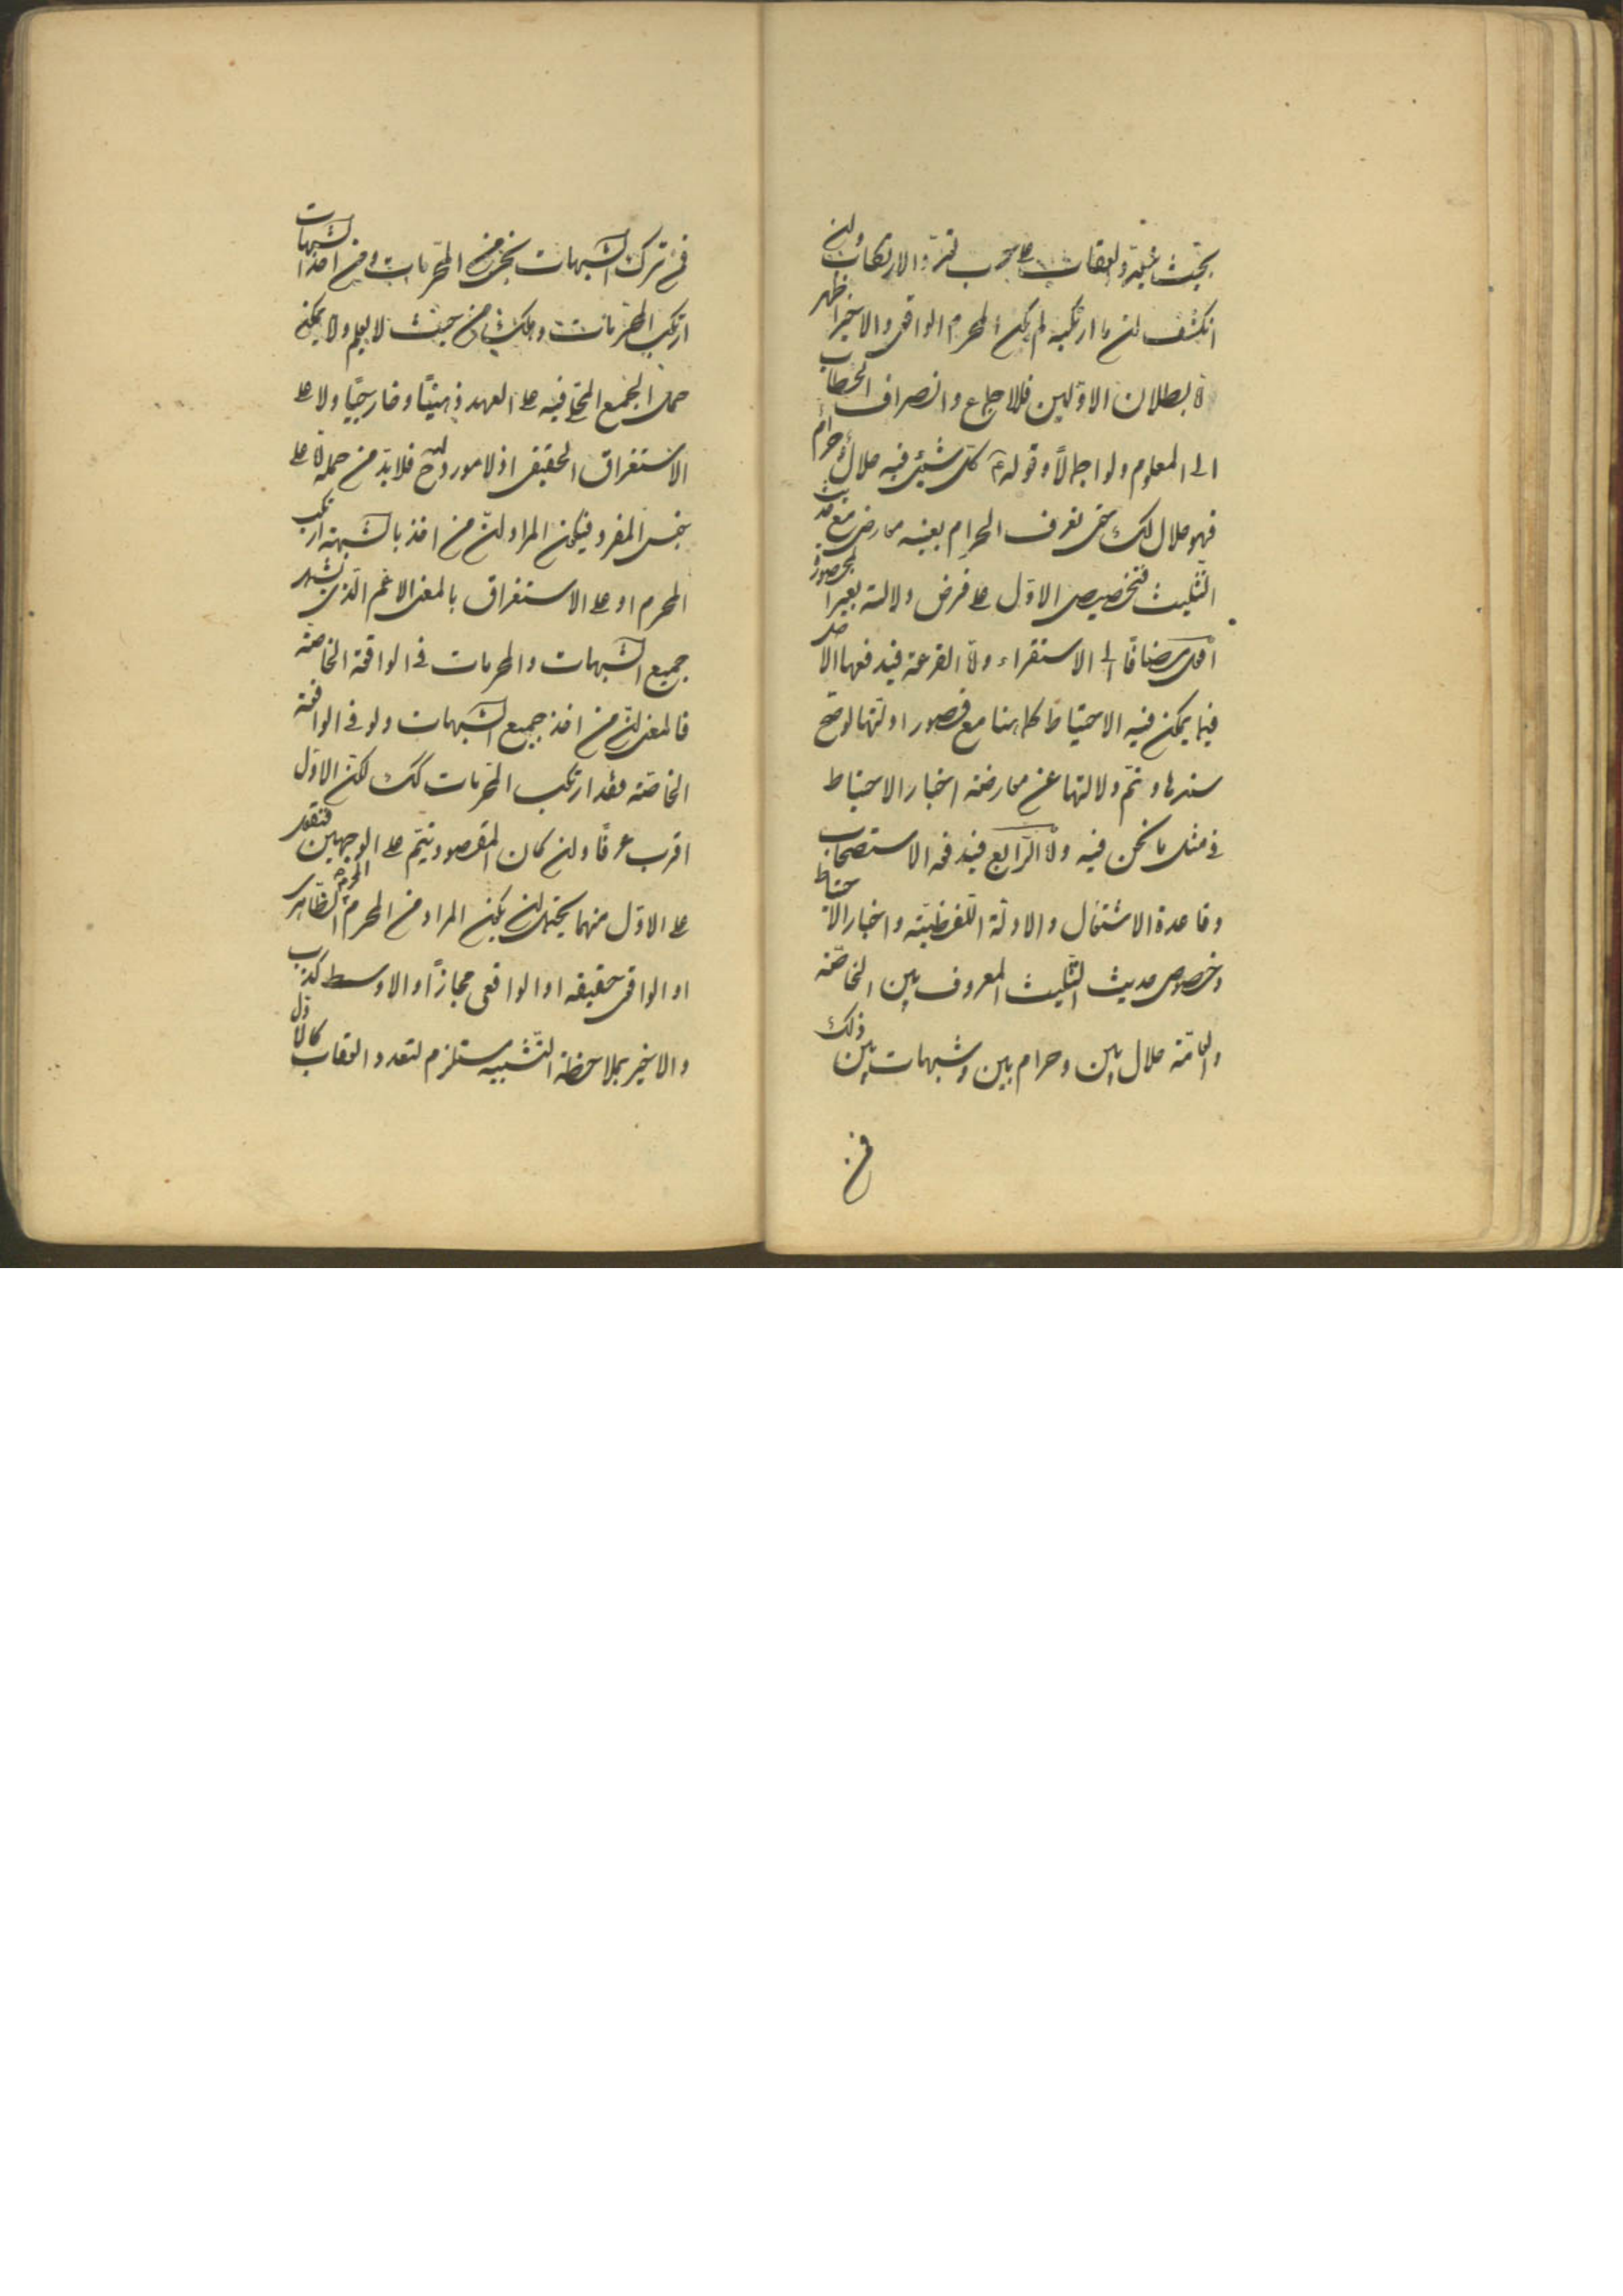 بحيث يتعدد العقاب على حسب تعدد الارتكاب وان
انكشف ان ما ارتكبه لم يكن المحرم الواقعى والاخير اظهر
لا بطلان الاولين فللاجماع وانصراف الخطاب
الى المعلوم ولو اجمالاً وقوله ع كل شيئ فيه حلال وحرام
فهو حلال لك حتى تعرف الحرام بعينه معارض مع حديث
التثليث فتخصيص الاول على فرض دلالته بغير المحصورة
اولى مضافا الى الاستقراء ولا القرعة فيدفعها الاصل
فيما يمكن فيه الاحتياط كما هنا مع قصور ادلتها لو صح
سندها وتم دلالتها عن معارضة اخبار الاحتياط
فى مثل ما نحن فيه ولا الرابع فيدفعه الاستصحاب
وقاعدة الاشتغال والادلة اللفظية واخبار الاحتياط
وخصوص حديث التثليث المعروف بين الخاصة
والعامة حلال بين وحرام بين وشبهات بين ذلك
فمن
فمن ترك الشبهات نجى من المحرمات ومن اخذ الشبهات
ارتكب المحرمات وهلك من حيث لا يعلم ولا يمكن
حمل الجمع المحلى فيه على العهد ذهنيًّا وخارجيًّا ولا على
الاستغراق الحقيقى اذ لا مورد له ح فلا بد من حمله على
جنس المفرد فيكون المراد ان من اخذ بالشبهة ارتكب
المحرم او على الاستغراق بالمعنى الاعم الذى يشمل
جميع الشبهات والمحرمات فى الواقعة الخاصة
فالمعنى ان من اخذ جميع الشبهات ولو فى الواقعة
الخاصة فقد ارتكب المحرمات كك لكن الاول
اقرب عرفًا وان كان المقصود يتم على الوجهين فنقول
على الاول منهما يحتمل ان يكون المراد من المحرم المحرم الظاهرى
او الواقعى حقيقة او الواقعى مجازًا والاوسط كذب
والاخير بملاحظة التشبيه مستلزم لتعدد العقاب كالاول